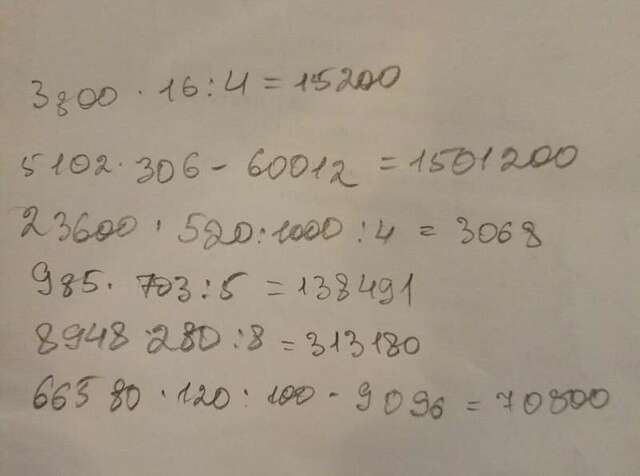 3800 · 16 : 4 = 15200
5102 · 306 - 60012 = 1501200
23600 · 520 : 1000 : 4 = 3068
985 · 703 : 5 = 138491
8948 · 280 : 8 = 313180
66580 · 120 : 100 - 9096 = 70800